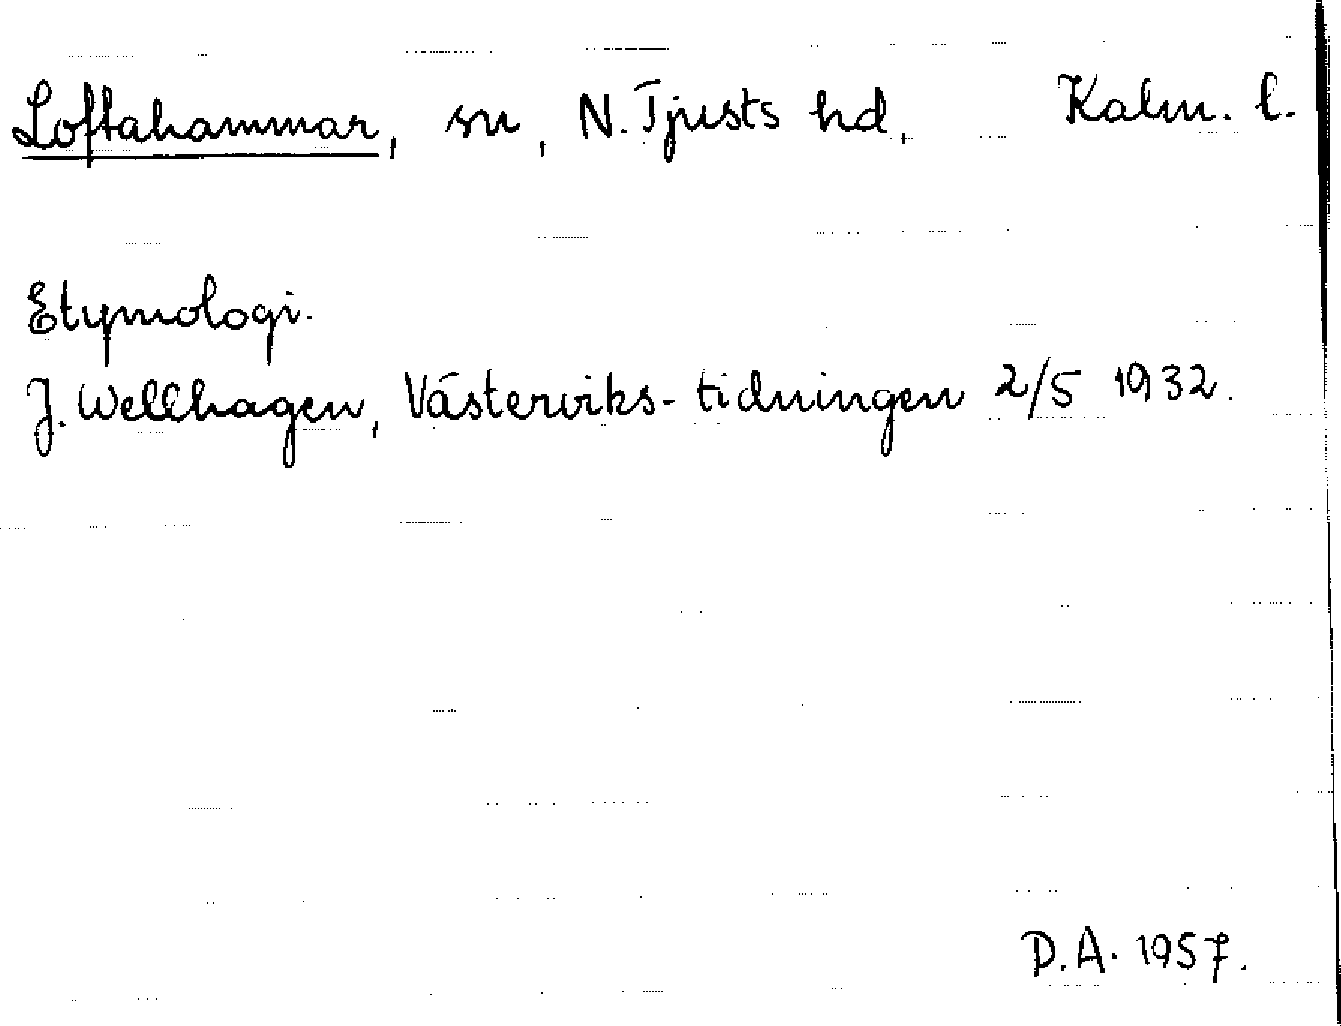 Loftahammar, sn, N. Tjusts hd, Kalm. l.
Etymologi.
J. Wellhagen, Västerviks-tidningen 2/5 1932.
D.A. 1957.